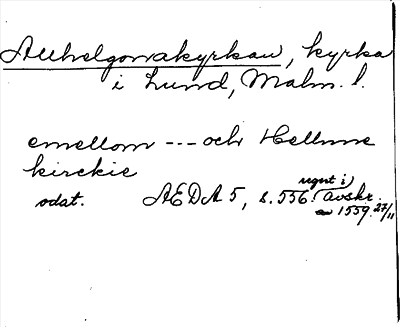 Allhelgonakyrkan, kyrka
i Lund, Malm. l.
emellom --- och Hellnne
kirckie
odat. AEDA 5, s. 556. (regest i) avskr.
av 1559 27/11